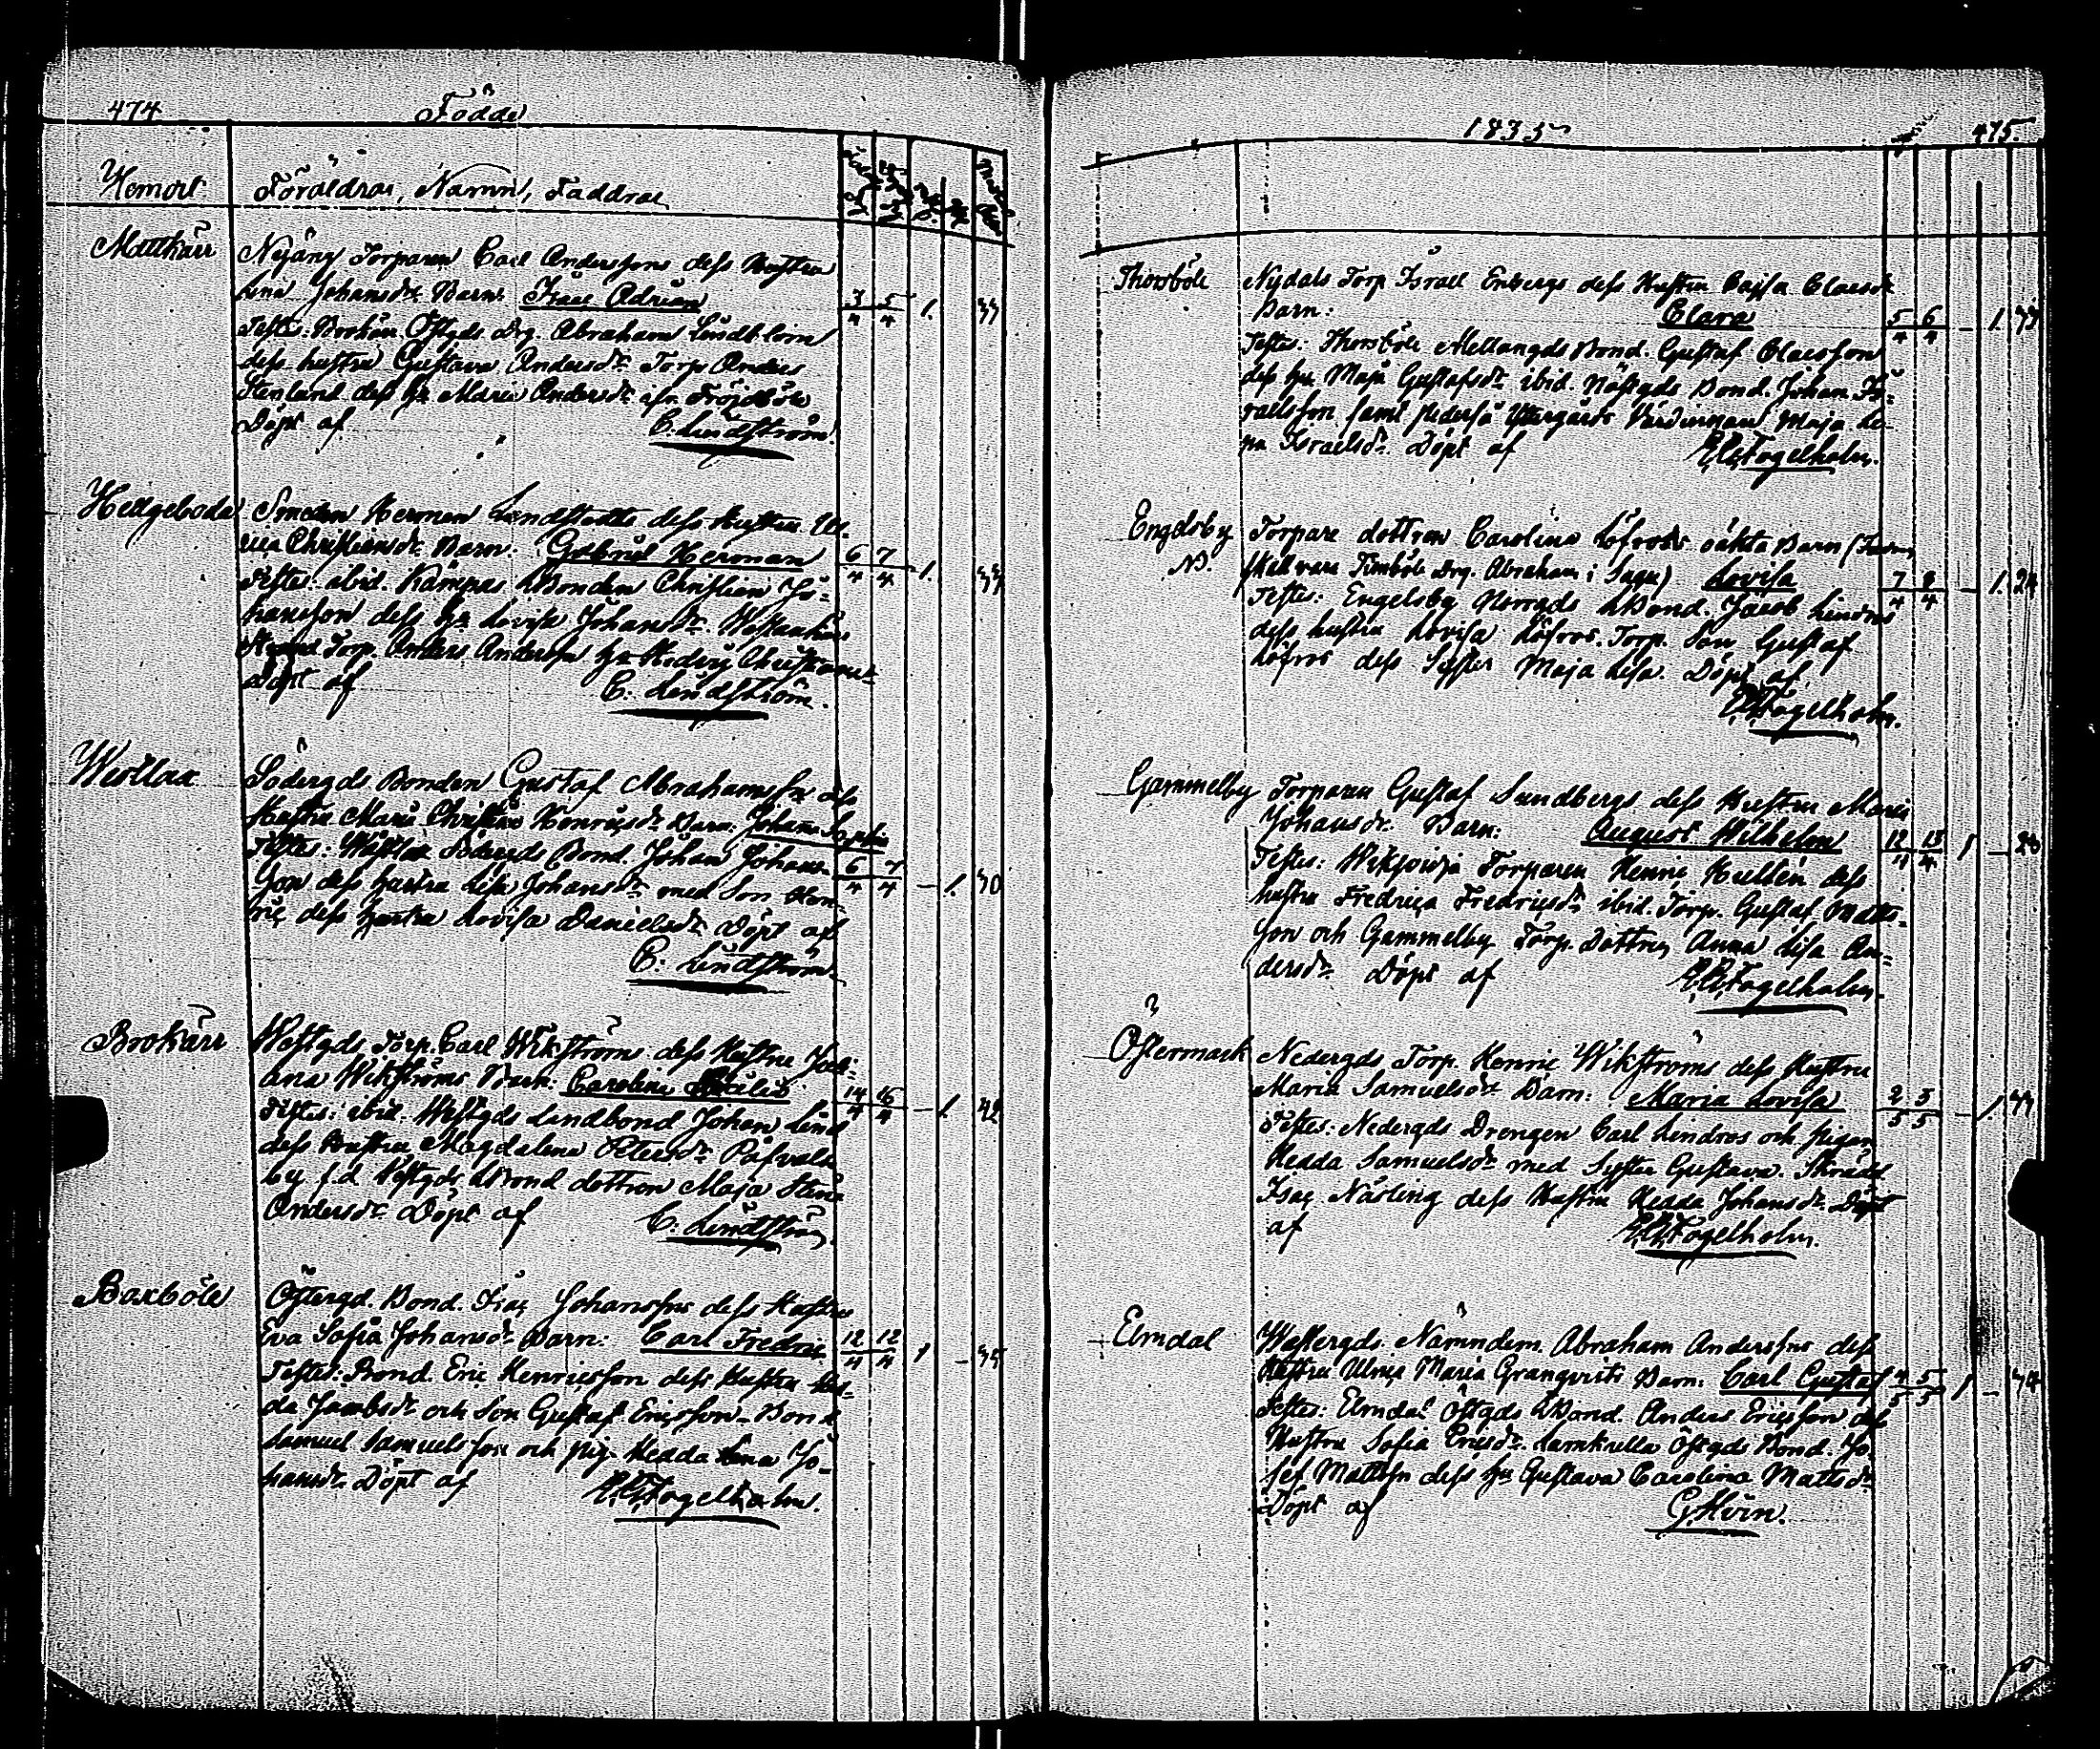 474
Födde
Hemort Föräldrar, Namn, Faddrar
Mattkärr Nyäng Torparen Carl Anderssons dess Hustru
Lena Johansdr Barn: Isac Adrian 3/4 5/4 1. 33
Testes: Brokärr Östgds Drg. Abraham Lindblom
dess hustru Gustava Andersdr Torp Anders
Stenlund dess hu Maria Andersdr ifr. Fröjdböle
Döpt af C. Lindström.
Hellgeboda Smeden Herman Landstedts dess Hustru Ul-
rica Christiansdr Barn: Gabriel Herman 6/4 7/4 1. 33
Testes: ibid. Kämpas LBonden Christian Jo-
hansson dess hu Lovisa Johansdr.
Torp. Anders Andersson hu Hedvig
Döpt af C. Lindström.
Westlax Södergds Bonden Gustaf Abrahamssn dess
Hustru Maria Christina Henricsdr Barn: Johan 6/4 7/4 – 1. 30
Testes: Westlax Södergds Bond. Johan Johans-
son dess hustru Lisa Johansdr med Son Hen-
ric dess hustru Lovisa Danielsdr Döpt af
C. Lindström.
Brokärr Westgds Torp. Carl Wikströms dess Hustru Juli-
ana Wikströms Barn: Carolina 14/4 16/4 – 1. 42
Testes: ibid. Westgds Landbond Johan Lind
dess Hustru Magdalena Petersdr Påfvals-
by f.d. Westgds LBond dottren Maja Stina
Andersdr. Döpt af C. Lindström.
Boxböle Östergd. Bond. Isac Johanssns dess Hustru
Eva Sofia Johansdr Barn: Carl Fredric 12/4 12/4 1 – 35
Testes: Bond. Eric Henricsson dess Hustru Hed-
da Jacobsdr och Son Gustaf Ericsson. Bond
Samuel Samuelsson och Pig. Hedda Lena Jo-
hansdr. Döpt af Fogelholm.
1835
475.
Thorsböle Nydals Torp Israel Enbergs dess Hustru Cajsa Claesdr
Barn: Clara 5/4 6/4 – 1. 33
Testes: Thorsböle Mellangds Bond. Gustaf Claesson
dess hu Maja Gustafsdr ibid. Nästgds Bond. Johan Is-
raelsson samt Pederså Yttergårds Värdinnan Maja Le-
na Israelsdr. Döpt af Fogelholm.
Engelsby Torpare dottren Carolina Löfroos oäkta Barn (Fadren
N. skall vara Finböle Drg. Abraham i Sagu) Lovisa 7/4 8/4 – 1. 24
Testes: Engelsby Norrgds LBond. Jacob Lindros
dess hustru Lovisa Löfros. Torp. Son Gustaf
Löfros dess Syster Maja Lisa. Döpt af
Fogelholm.
Gammelby Torparen Gustaf Sundbergs dess Hustru Maria
Johansdr. Barn: August Wilhelm 12/4 13/4 1 – 28
Testes: Torparen Henric Hulten dess
hustru Fredrica Fredricsdr ibid. Torp. Gustaf Matts-
son och Gammelby Torp. Dottren Anna Lisa An-
dersdr. Döpt af Fogelholm.
Östermark Nedergds Torp. Henric Wikströms dess Hustru
Maria Samuelsdr Barn: Maria Lovisa 2/5 3/5 – 1 33
Testes: Nedergds Drengen Carl Lindros och Pigan
Hedda Samuelsdr med Syster Gustava. Skrädd.
Isac Näsling dess Hustru Hedda Johansdr. Döpt
af Fogelholm.
Elmdal Westergds. Nämndem. Abraham Anderssns dess
Hustru Ulrica Maria Granqvists Barn: Carl Gustaf 4/5 5/5 1 – 34
Testes: Elmdal Östgds LBond. Anders Ericsson dess
Hustru Sofia Ericsdr. Lamkulla Östgds Bond. Jo-
sef Mattssn dess hu Gustava Carolina Mattsdr
Döpt af G. Hoim.